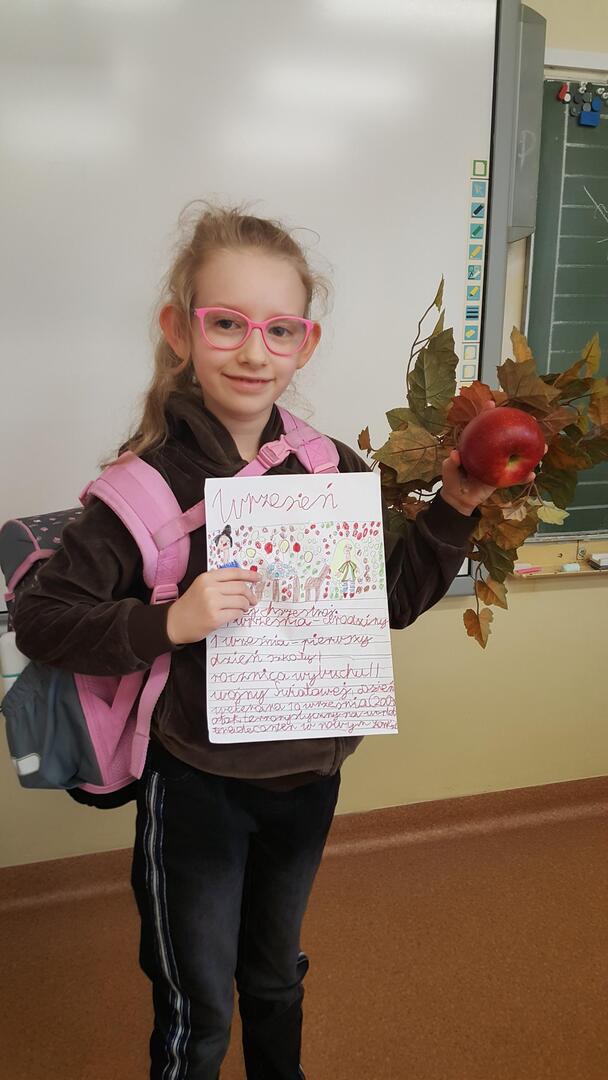 Wrzesień
chrzestnej
1 września - urodziny
1 września - pierwszy
dzień szkoły!
rocznica wybuchu II
wojny światowej, dzień
weterana
atak terrorystyczny na world
trade center w nowym